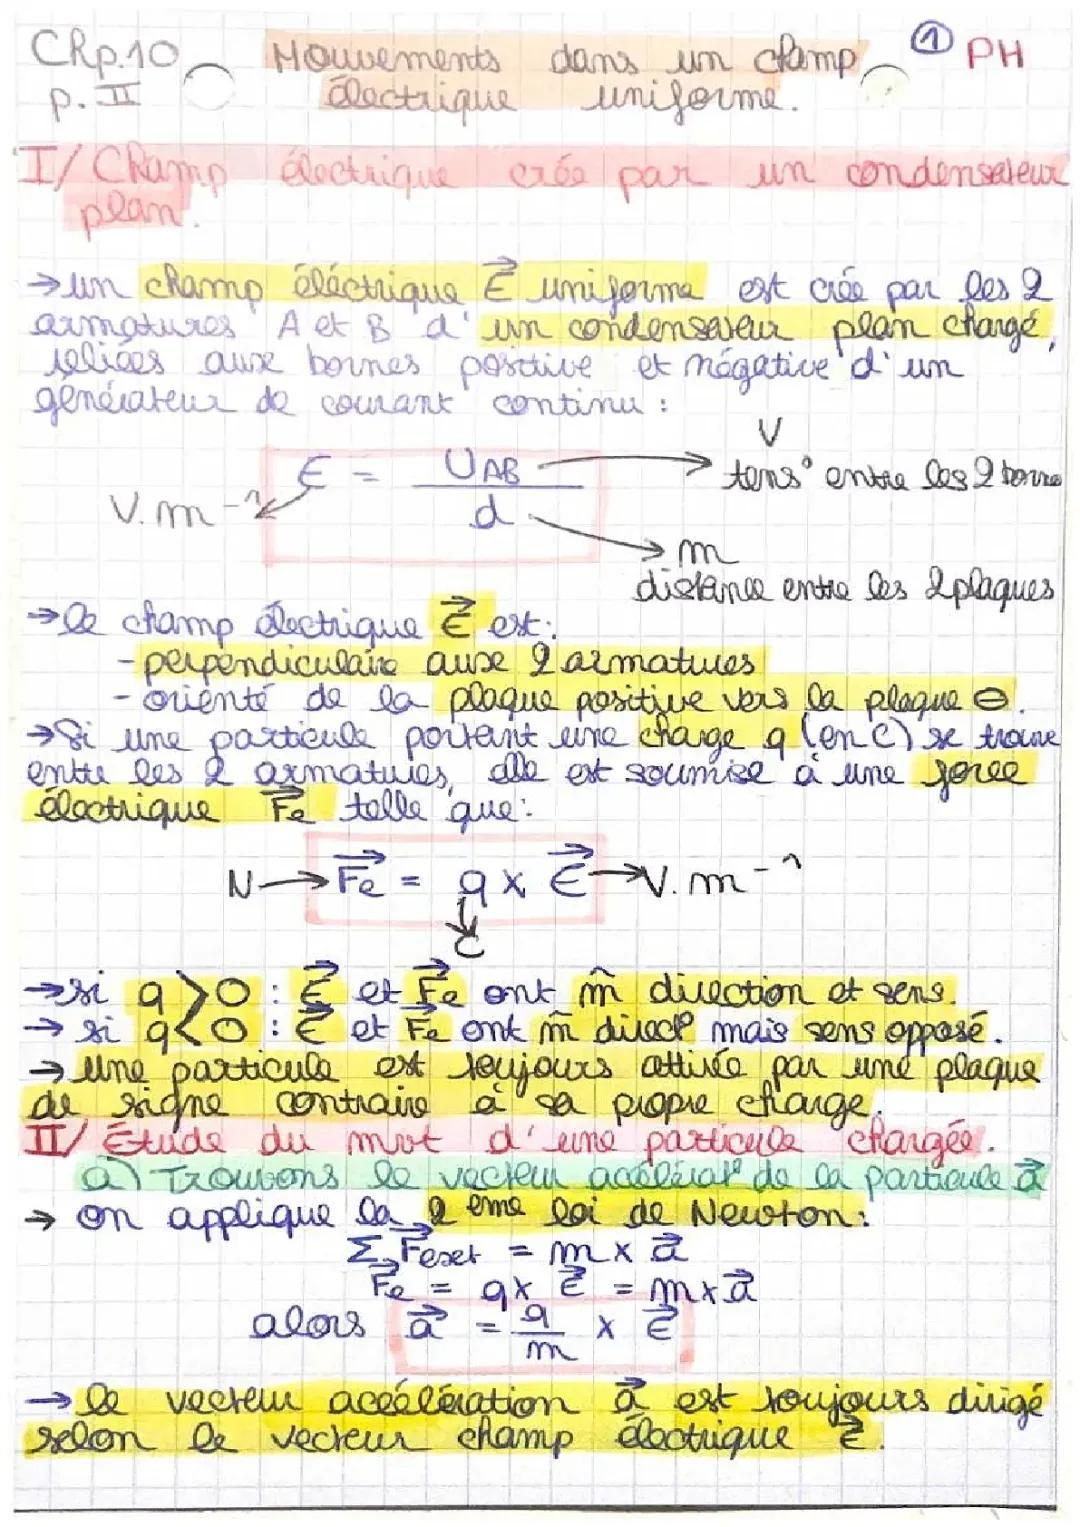 CRp.10 Mouvements dans un champ ① PH
p. II électrique uniforme.
I/ Champ électrique crée par un condensateur
plan.
→ un champ éléctrique E⃗ uniforme est crée par les 2
armatures A et B d'un condensateur plan chargé,
reliées aux bornes positive et négative d'un
générateur de courant continu :
V
E = U_AB / d → tens° entre les 2 borne
V.m⁻¹
m
distance entre les 2 plaques
→ le champ électrique E⃗ est:
- perpendiculaire aux 2 armatures
- orienté de la plaque positive vers la plaque ⊖.
→ Si une particule portant une charge q (en C) se trouve
entre les 2 armatures, elle est soumise à une force
électrique F⃗e telle que:
N → F⃗e = q x E⃗ → V.m⁻¹
C
→ si q > 0 : E⃗ et F⃗e ont m̂ direction et sens.
→ si q < 0 : E⃗ et F⃗e ont m̂ direct° mais sens opposé.
→ une particule est toujours attirée par une plaque
de signe contraire à sa propre charge.
II/ Étude du mvt d'une particule chargée.
a) Trouvons le vecteur accélérat° de la particule a⃗
→ on applique la 2eme loi de Newton:
Σ F⃗ext = m x a⃗
F⃗e = q x E⃗ = m x a⃗
alors a⃗ = q/m x E⃗
→ le vecteur accélération a⃗ est toujours dirigé
selon le vecteur champ électrique E⃗.